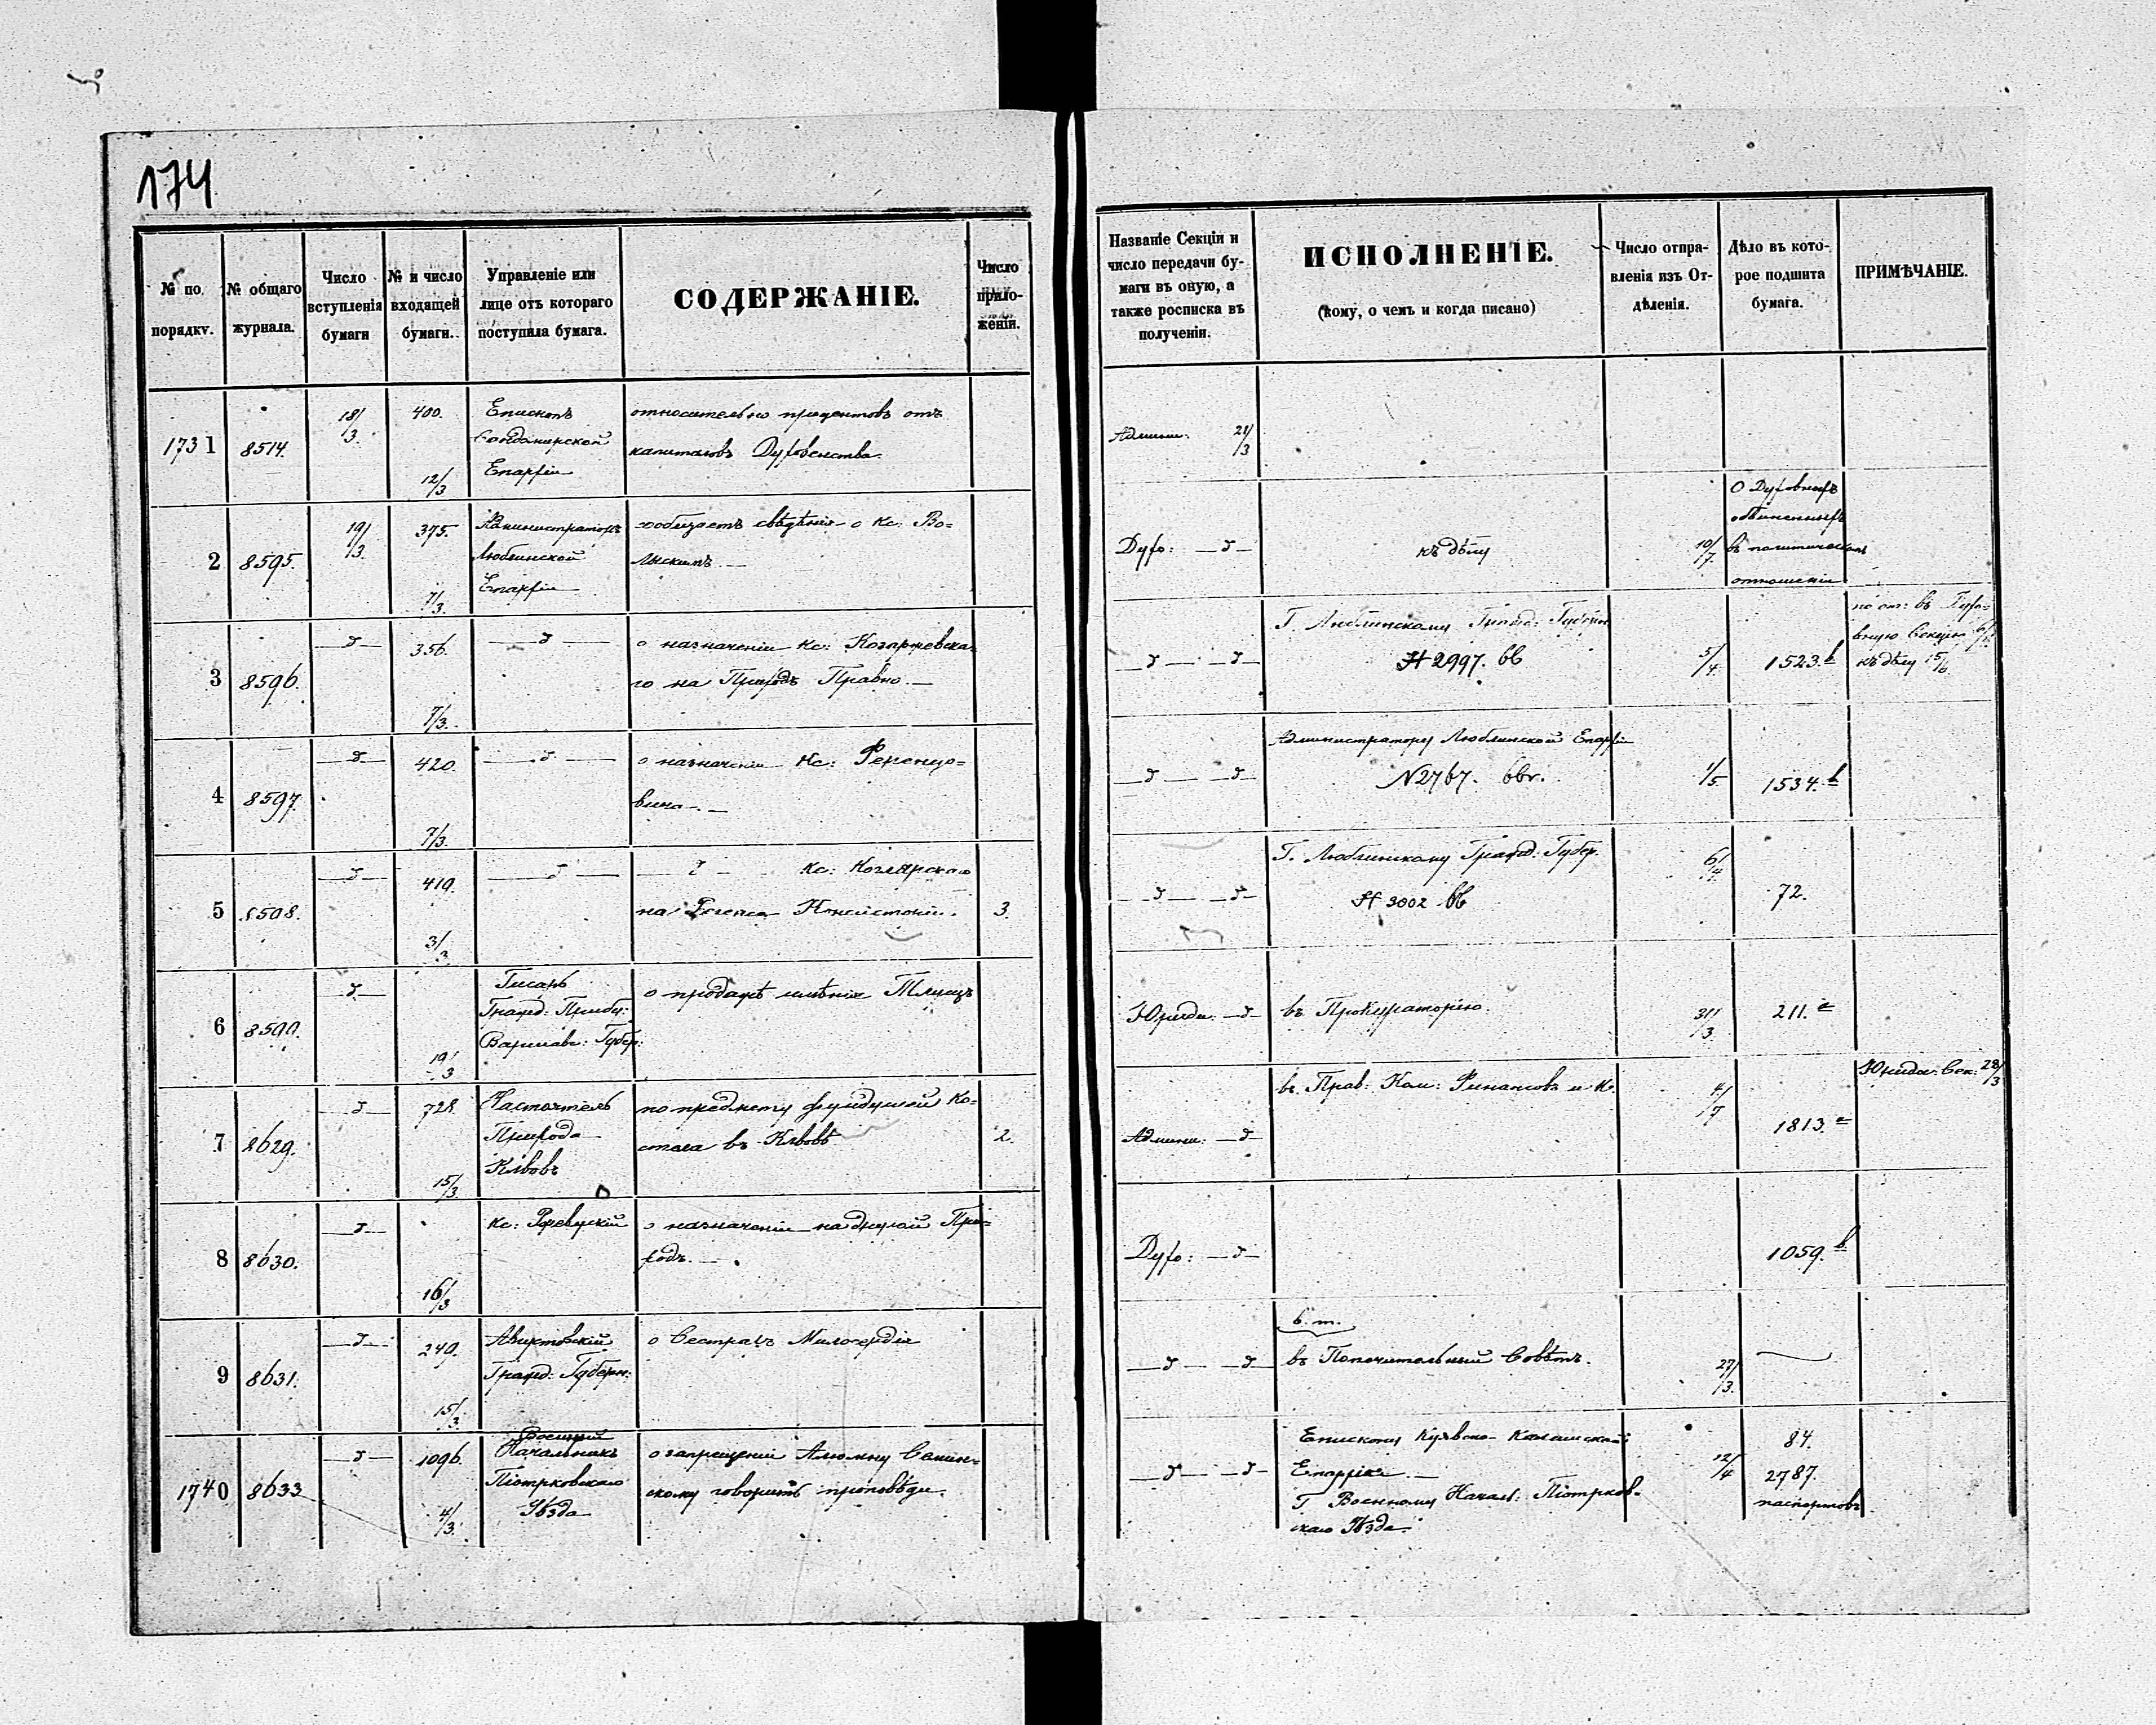 174
№ по порядку.
№ общаго журнала.
Число вступленія бумаги
№ и число входящей бумаги.
Управленіе или лице отъ котораго поступила бумага.
СОДЕРЖАНІЕ.
Число приложеній.
Названіе Секціи и число передачи бумаги въ оную, а также росписка въ полученіи.
ИСПОЛНЕНІЕ.
(кому, о чемъ и когда писано)
Число отправленія изъ Отдѣленія.
Дѣло въ которое подшита бумага.
ПРИМѢЧАНІЕ.
1731 8514. 18/3. 400. 12/3
Епископъ
Сандомирской
Епархіи
относительно процентовъ отъ
капиталовъ Духовенства.
Админи: 21/3
2 8595. 19/3. 375. 7/3.
Администраторъ
Люблинской
Епархіи
сообщаетъ свѣдѣнія о Кс: Во=
Духо: —д—
къ дѣлу
10/7.
О Духовныхъ
обвиненныхъ
въ политическомъ
отношеніи
3 8596. —д— 356. 7/3. —д—
о назначеніи Кс: Козаржевска
го на Приходъ Правно.—
—д— —д—
Г. Люблинскому Гражд: Губерн
№ 2997. вв
5/4. 1523. b
къ дѣлу 15/6
4 8597. —д— 420. 7/3. —д—
о назначеніи Кс: Ференцо=
вича.—
—д— —д—
Администратору Люблинской Епархіи
N 2767. ввг.
1/5 1534. b
5 8598. —д— 419. 3/3 —д—
—д— Кс: Коглярскаго
на Регенса Консисторіи.
3.
—д— —д—
Г. Люблинскому Гражд: Губер.
№ 3002 вв
6/4 72.
6 8599. —д— 19/3
Писарь
Гражд: Трибу:
Варшавс: Губер:
о продажѣ имѣнія
Юриди: —д—
въ Прокураторію.
31/3. 211. c
7 8629. —д— 728. 15/3.
Настоятель
Прихода
Клвовъ
по предмету фундушей Ко=
стела въ Клвовѣ
2.
Админи: —д—
въ Прав: Ком: Финансовъ и К.
4/7 1813. c
Юриди: Сек: 28/3
8 8630. —д— 16/3
о назначеніи на другой При=
ходъ.—
Духо: —д—
1059. b
9 8631. —д— 249. 15/3.
Августовскій
Гражд: Губерн:
о Сестрахъ Милосердія
—д— —д—
в. т.
въ Попечительный Совѣтъ.
27/3.
1740 8633 —д— 1096. 4/3.
Военный
Начальникъ
Піотрковскаго
Уѣзда
о запрещеніи Алюмну Семин=
скому говорить проповѣди.
—д— —д—
Епископу Куявско-Калишской
Епархіи.—
Г Военному Начал: Піотрков-
скаго Уѣзда.
12/4
84.
2787.
паспортовъ